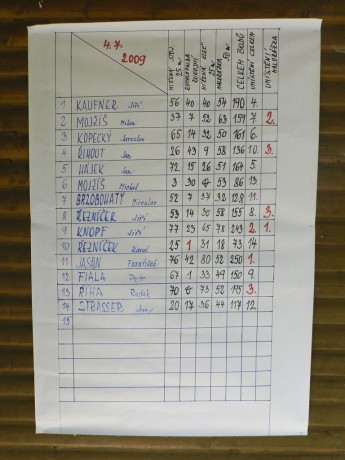 4. 7. 2009
MÍŘENÁ STOJ. 25 m
MÍŘENÁ KLEČ 25 m
MALORÁŽKA 50 m
CELKEM BODŮ
UMÍSTĚNÍ CELKEM
UMÍSTĚNÍ MALORÁŽKA
1 KAUFNER Jiří 56 40 40 54 190 4.
2 MOJŽÍŠ Milan 37 7 52 63 159 7. 2.
3 KOPECKÝ Jaroslav 65 14 32 50 161 6.
4 ŘÍHOUT Jan 26 43 9 58 136 10. 3.
5 HÁJEK Jan 72 15 26 51 164 5.
6 MOJŽÍŠ Michal 3 30 0 53 86 13
7 BRZOBOHATÝ Miroslav 52 7 37 32 128 11.
8 ŘEZNÍČEK Jiří 53 14 30 58 155 8. 3.
9 KNOPF Jiří 77 23 65 78 243 2. 1.
10 ŘEZNÍČEK Karel 25 1 31 18 73 14
11 JASAN František 76 42 80 52 250 1.
12 FIALA Petr 67 1 33 49 150 9.
13 ŘÍHA Radek 70 0 73 52 195 3.
14 STRASSER 20 17 36 44 117 12.
15